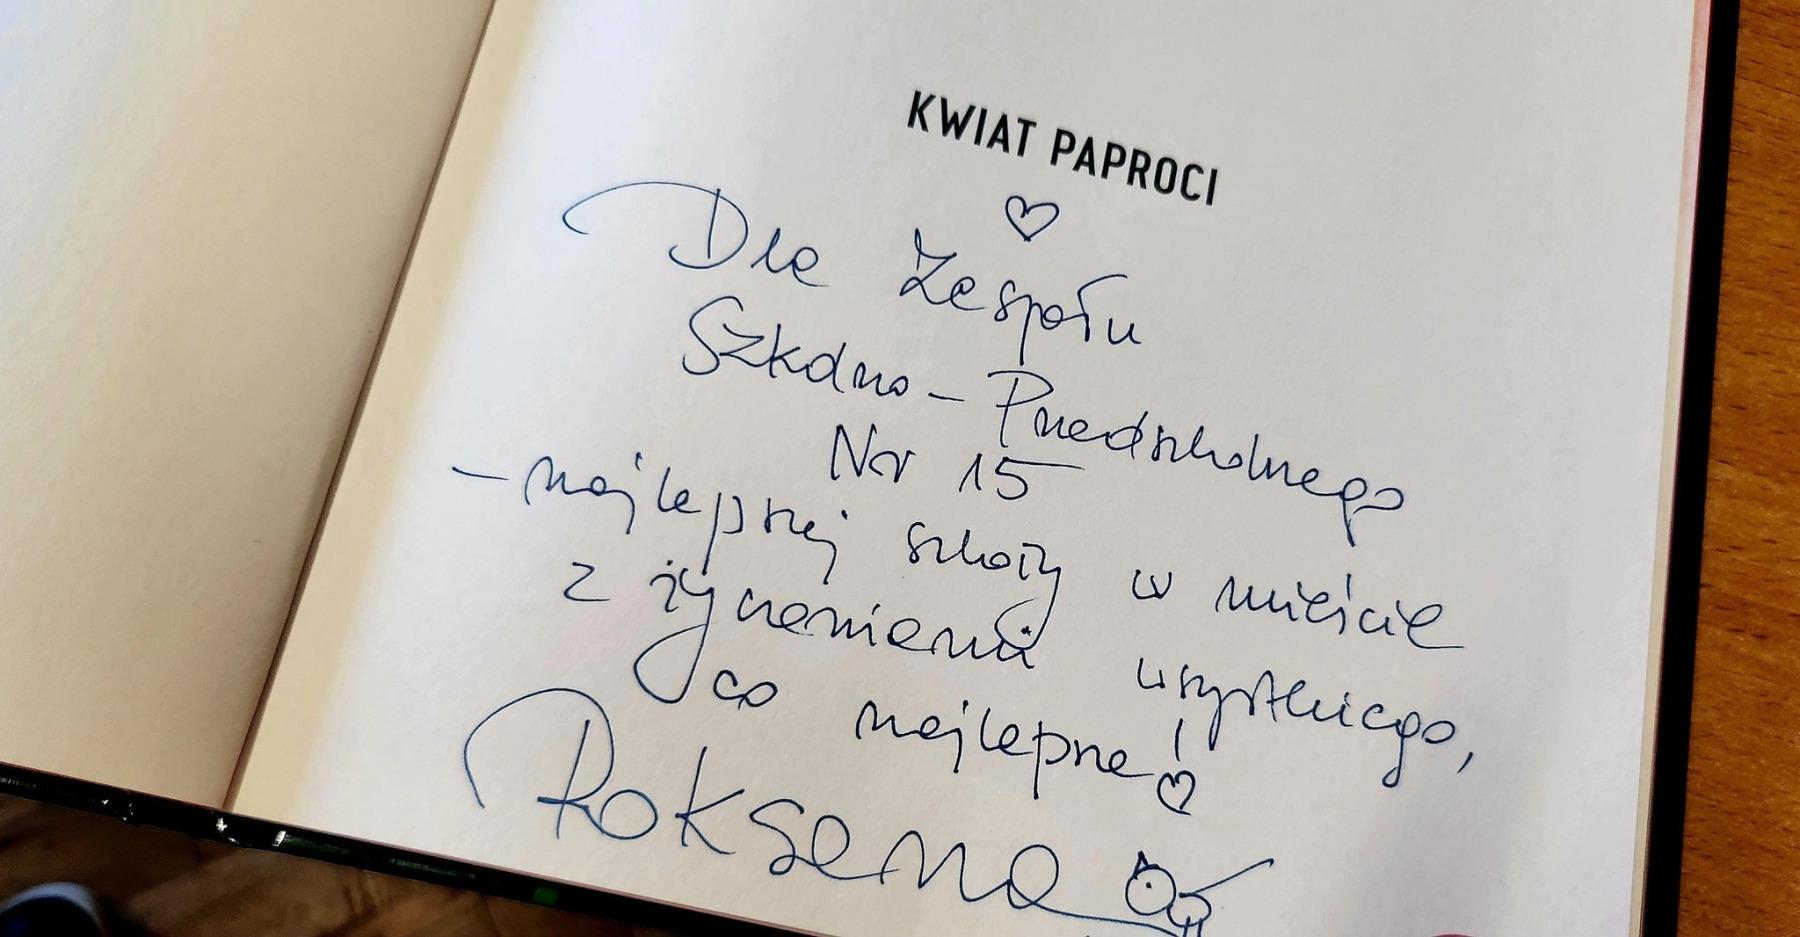 KWIAT PAPROCI
Dla Zespołu
Szkolno-Przedszkolnego
Nr 15
- najlepszej szkoły w mieście
z życzeniami wszystkiego,
co najlepsze!
Roksana